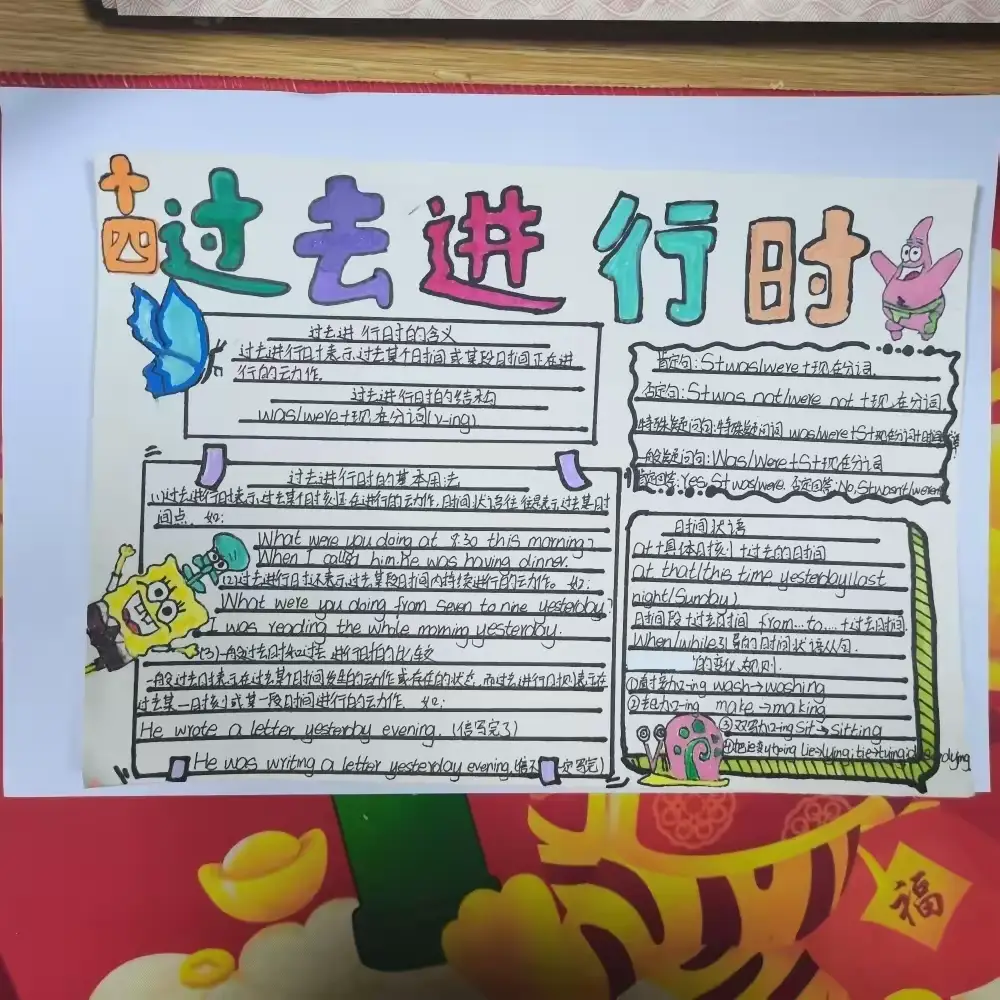 十四 过去进行时
过去进行时的含义
过去进行时表示过去某个时间或某段时间正在进
行的动作。
过去进行时的结构
was/were+现在分词(v-ing)
过去进行时的基本用法
(1)过去进行时表示过去某个时刻正在进行的动作,时间状语往往是表示过去某时
间点。如:
What were you doing at 9:30 this morning?
When I called him.he was having dinner.
(2)过去进行时还表示过去某段时间内持续进行的动作。如:
What were you doing from seven to nine yesterday?
I was reading the whole morning yesterday.
(3)一般过去时和过去进行时的比较
一般过去时表示在过去某个时间发生的动作或存在的状态,而过去进行时则表示在
过去某一时刻或某一段时间进行的动作。如:
He wrote a letter yesterday evening.(信写完了)
He was writing a letter yesterday evening.(信不一定写完)
肯定句:S+was/were+现在分词.
否定句:S+was not/were not+现在分词.
特殊疑问句:特殊疑问词 was/were+S+现在分词+时间
一般疑问句:Was/Were+S+现在分词
肯定回答:Yes,S+was/were.否定回答:No,S+wasn't/weren't
时间状语
at+具体时刻+过去的时间
at that/this time yesterday(last
night/Sunday)
时间段+过去时间 from...to...+过去时间.
When/while引导的时间状语从句.
的变化规则.
①直接加-ing wash→washing
②去e加-ing make→making
③双写加-ing sit→sitting
lie→lying;tie→tying;die→dying
福